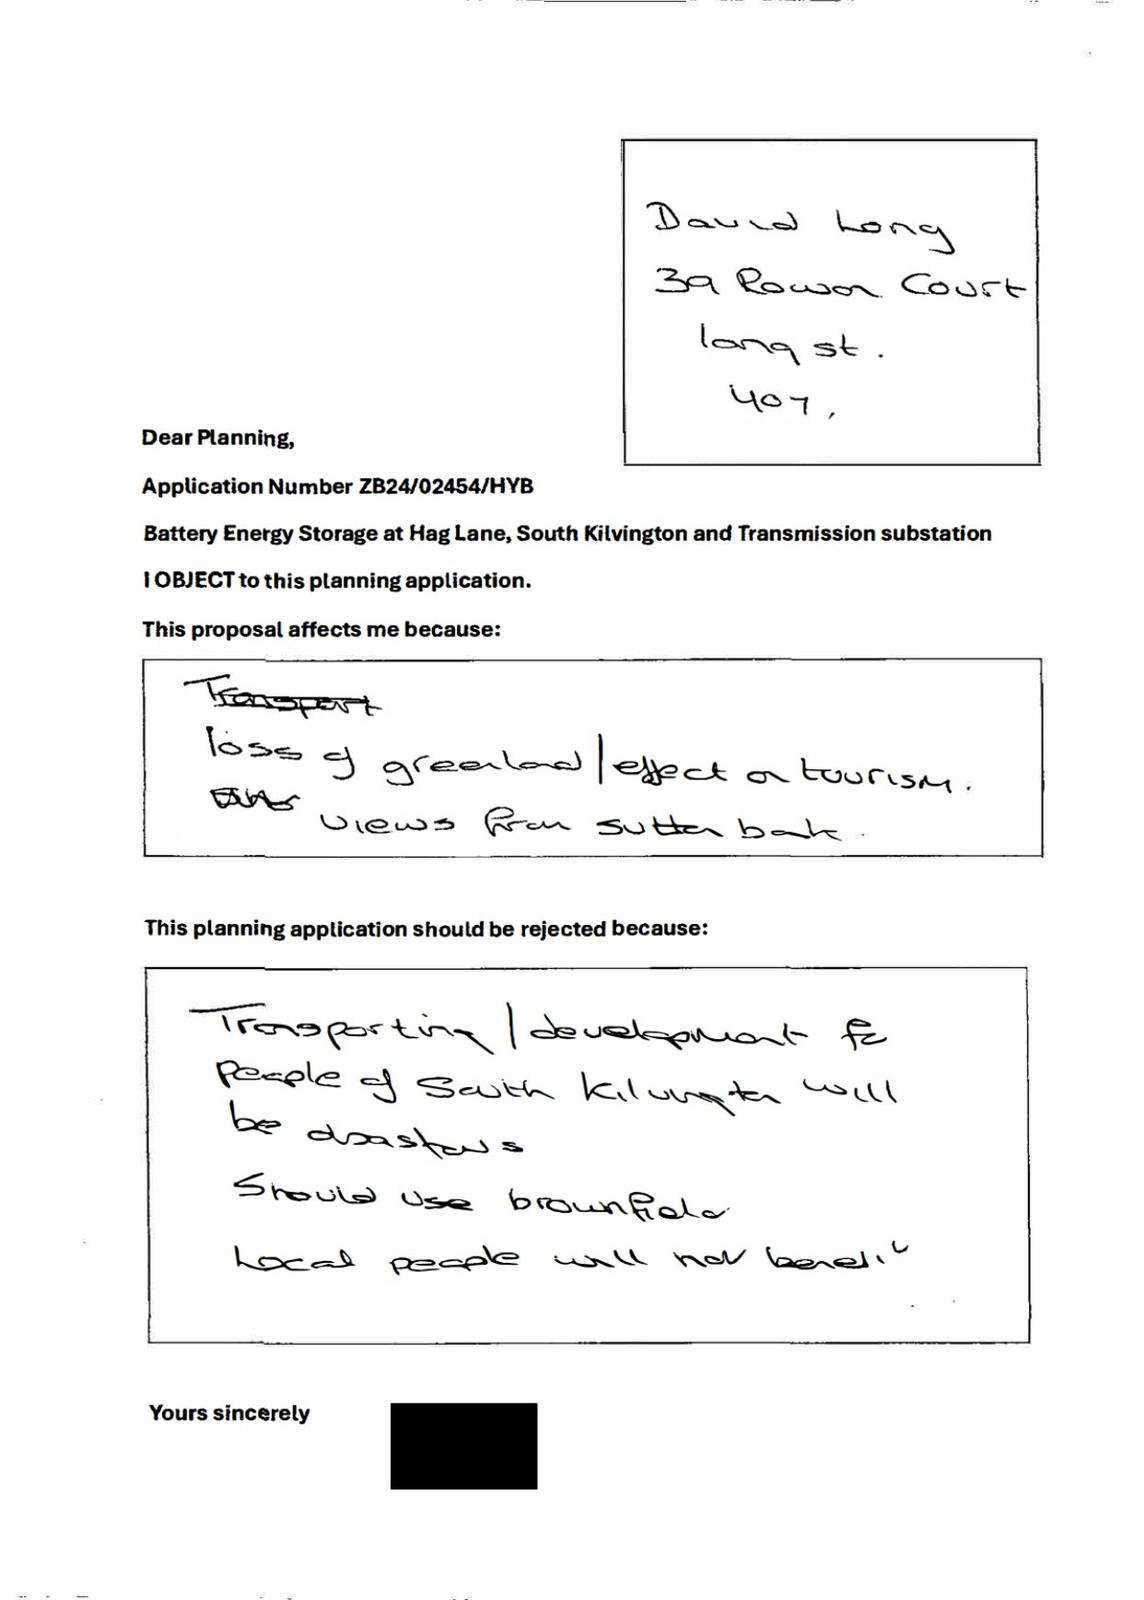 David Long
39 Rowan Court
long st.
407,
Dear Planning,
Application Number ZB24/02454/HYB
Battery Energy Storage at Hag Lane, South Kilvington and Transmission substation
I OBJECT to this planning application.
This proposal affects me because:
Transport
loss of greenland/effect on tourism.
views from sutton bank.
This planning application should be rejected because:
Transporting/development for
people of South Kilvington will
be disastrous
Should use brownfield
Local people will not benefit
Yours sincerely